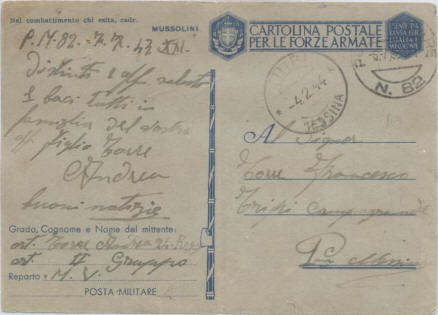 Nel combattimento chi esita, cadr.
MUSSOLINI
P.M. 82 - 7.7.43 XXI
Distinti e aff. saluti
e baci tutti in
famiglia dal vostro
aff. figlio Torre
Andrea
buoni notizie
Grado, Cognome e Nome del mittente:
art. Torre Andrea 24 Regg.
art. II Gruppo
Reparto M. V.
POSTA MILITARE
CARTOLINA POSTALE
PER LE FORZE ARMATE
-4.2.44
MESSINA
N. 82
Al Signor
Torre Francesco
Tripi